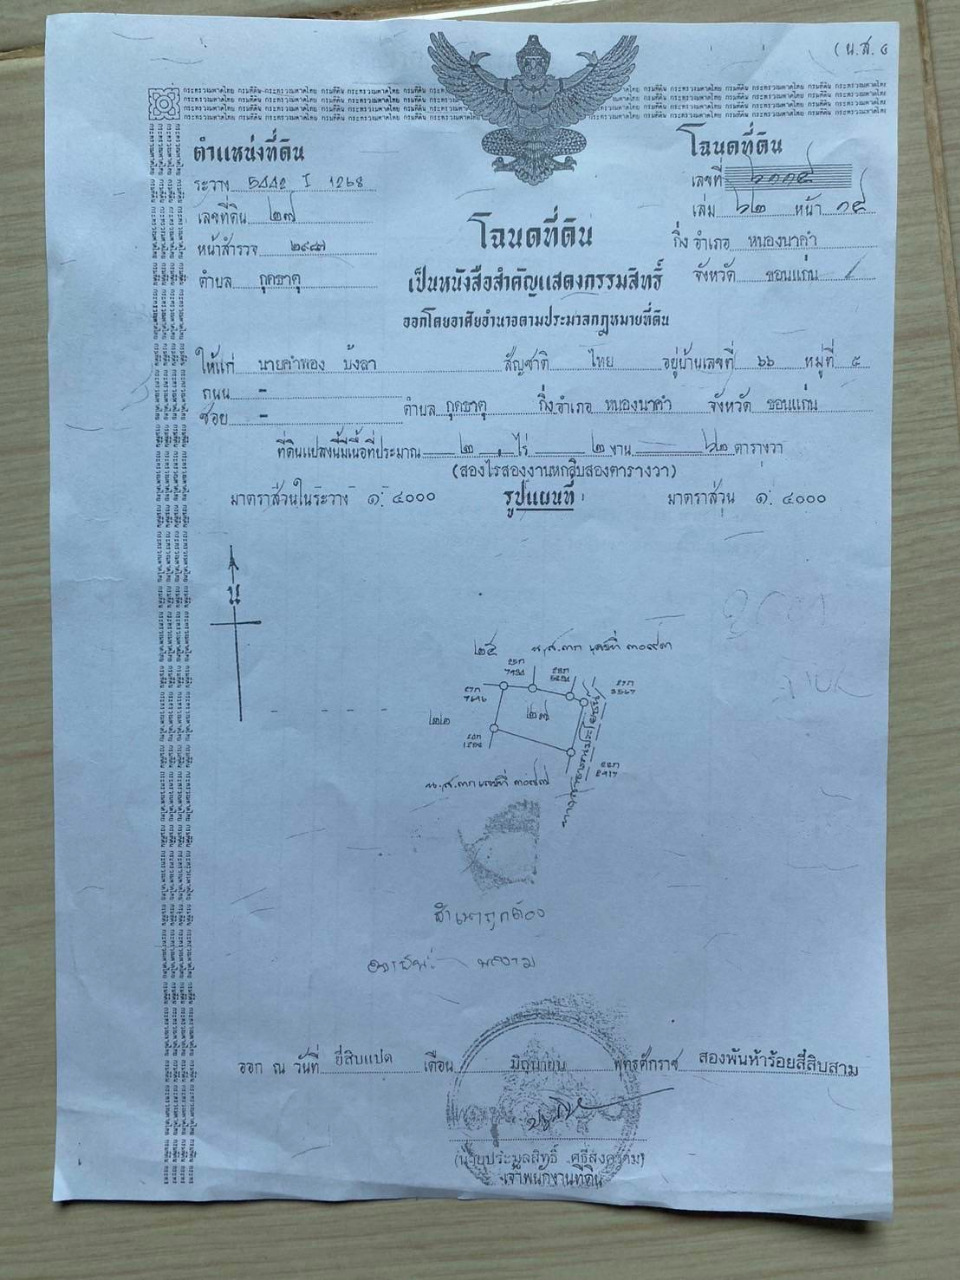 (น.ส. ๔
ตำแหน่งที่ดิน
ระวาง 5442 I 1268
เลขที่ดิน ๒๗
หน้าสำรวจ ๒๙๘๗
ตำบล กุดธาตุ
โฉนดที่ดิน
เลขที่
เล่ม ๖๒ หน้า ๑๕
กิ่ง อำเภอ หนองนาคำ
จังหวัด ขอนแก่น
โฉนดที่ดิน
เป็นหนังสือสำคัญแสดงกรรมสิทธิ์
ออกโดยอาศัยอำนาจตามประมวลกฎหมายที่ดิน
ให้แก่ นายคำพอง บังลา สัญชาติ ไทย อยู่บ้านเลขที่ ๖๖ หมู่ที่ ๕
ถนน -
ซอย - ตำบล กุดธาตุ กิ่ง อำเภอ หนองนาคำ จังหวัด ขอนแก่น
ที่ดินแปลงนี้มีเนื้อที่ประมาณ ๒ ไร่ ๒ งาน ๖๒ ตารางวา
(สองไร่สองงานหกสิบสองตารางวา)
มาตราส่วนในระวาง ๑: ๔๐๐๐ รูปแผนที่ มาตราส่วน ๑: ๔๐๐๐
น
๒๕
๒๗
ทางสาธารณประโยชน์
สำเนาถูกต้อง
ออก ณ วันที่ ยี่สิบแปด เดือน มิถุนายน พุทธศักราช สองพันห้าร้อยสี่สิบสาม
(นายประมูลสิทธิ์ ศรีสงคราม)
เจ้าพนักงานที่ดิน